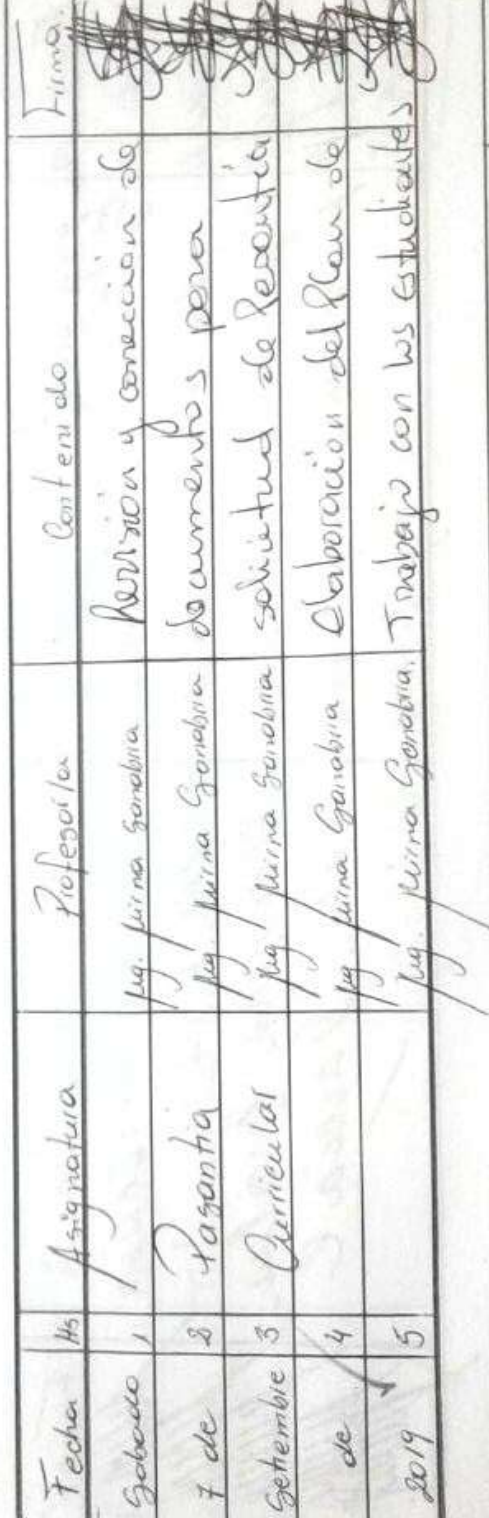 Fecha Hs Asignatura Profesor/a Contenido Firma
Sabado 1 Mg. Mirna Sanabria Revisión y corrección de
7 de 2 Pasantia Mg. Mirna Sanabria documentos para
Setiembre 3 Curricular Mg. Mirna Sanabria solicitud de Pasantía
de 4 Mg Mirna Sanabria Elaboración del Plan de
2019 5 Mg. Mirna Sanabria. Trabajo con los estudiantes